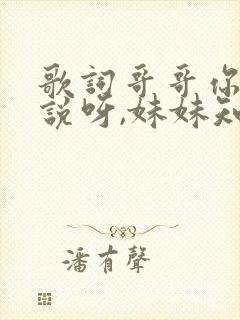 歌詞哥哥你
說呀,妹妹知
潘有聲